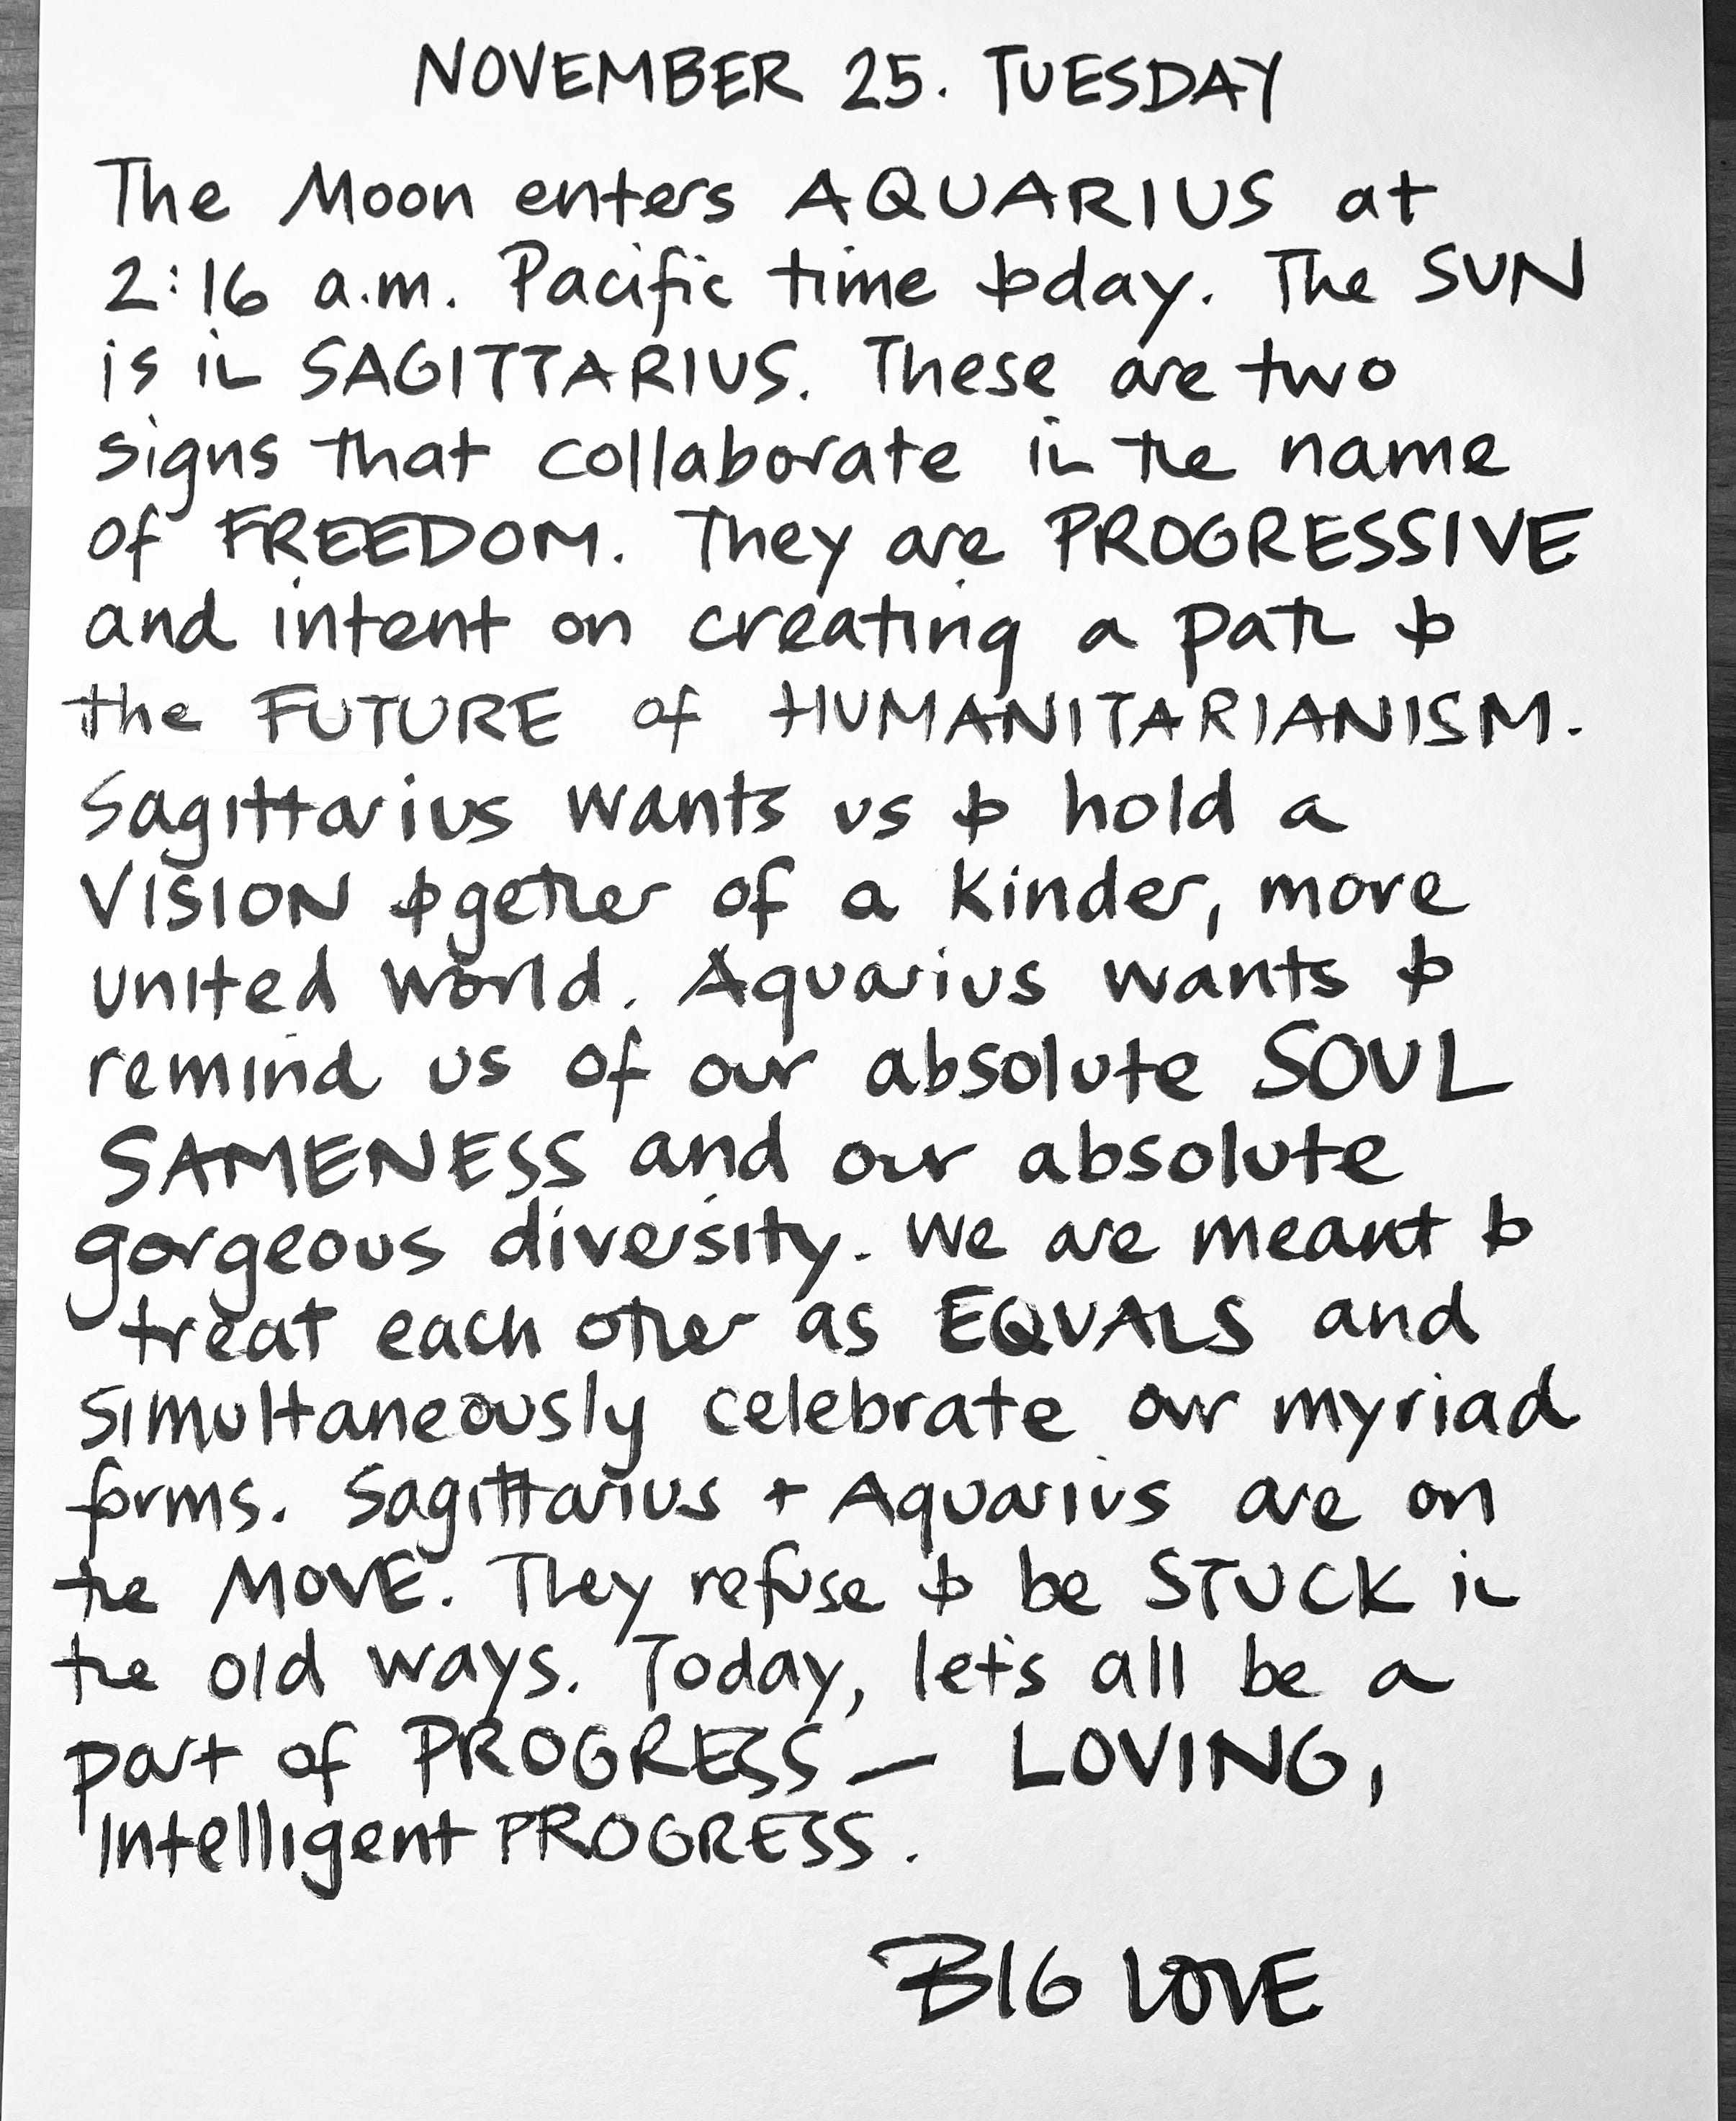 NOVEMBER 25. TUESDAY
The Moon enters AQUARIUS at
2:16 a.m. Pacific time today. The SUN
is in SAGITTARIUS. These are two
signs that collaborate in the name
of FREEDOM. They are PROGRESSIVE
and intent on creating a path to
the FUTURE of HUMANITARIANISM.
Sagittarius wants us to hold a
VISION together of a kinder, more
united world. Aquarius wants to
remind us of our absolute SOUL
SAMENESS and our absolute
gorgeous diversity. We are meant to
treat each other as EQUALS and
simultaneously celebrate our myriad
forms. Sagittarius + Aquarius are on
the MOVE. They refuse to be STUCK in
the old ways. Today, let's all be a
part of PROGRESS — LOVING,
Intelligent PROGRESS.
BIG LOVE